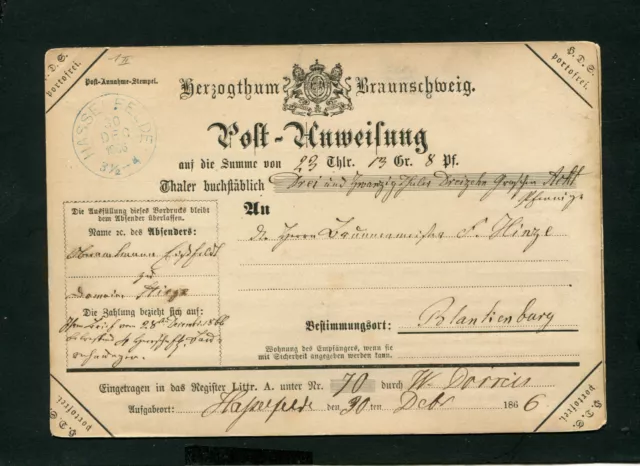 1II
B. D. S.
portofrei.
B. D. S.
portofrei.
Post-Annahme-Stempel.
HASSELFELDE
30
DEC
3½-4
Herzogthum Braunschweig.
Post-Anweisung
auf die Summe von 23 Thlr. 13 Gr. 8 Pf.
Thaler buchstäblich Drei und zwanzig Thaler Dreizehn Groschen Acht
Pfennige
An
Die Ausfüllung dieses Vordrucks bleibt
dem Absender überlassen.
Name ꝛc. des Absenders:
zu
Domaine Stiege
Die Zahlung bezieht sich auf:
1866
Herrn Brunnenmeister F. Hinze
Bestimmungsort: Blankenburg
Wohnung des Empfängers, wenn sie
mit Sicherheit angegeben werden kann.
Eingetragen in das Register Littr. A. unter Nr. 70 durch W.
Aufgabeort: Hasselfelde den 30 ten Decbr 1866
B. D. S.
portofrei.
B. D. S.
portofrei.